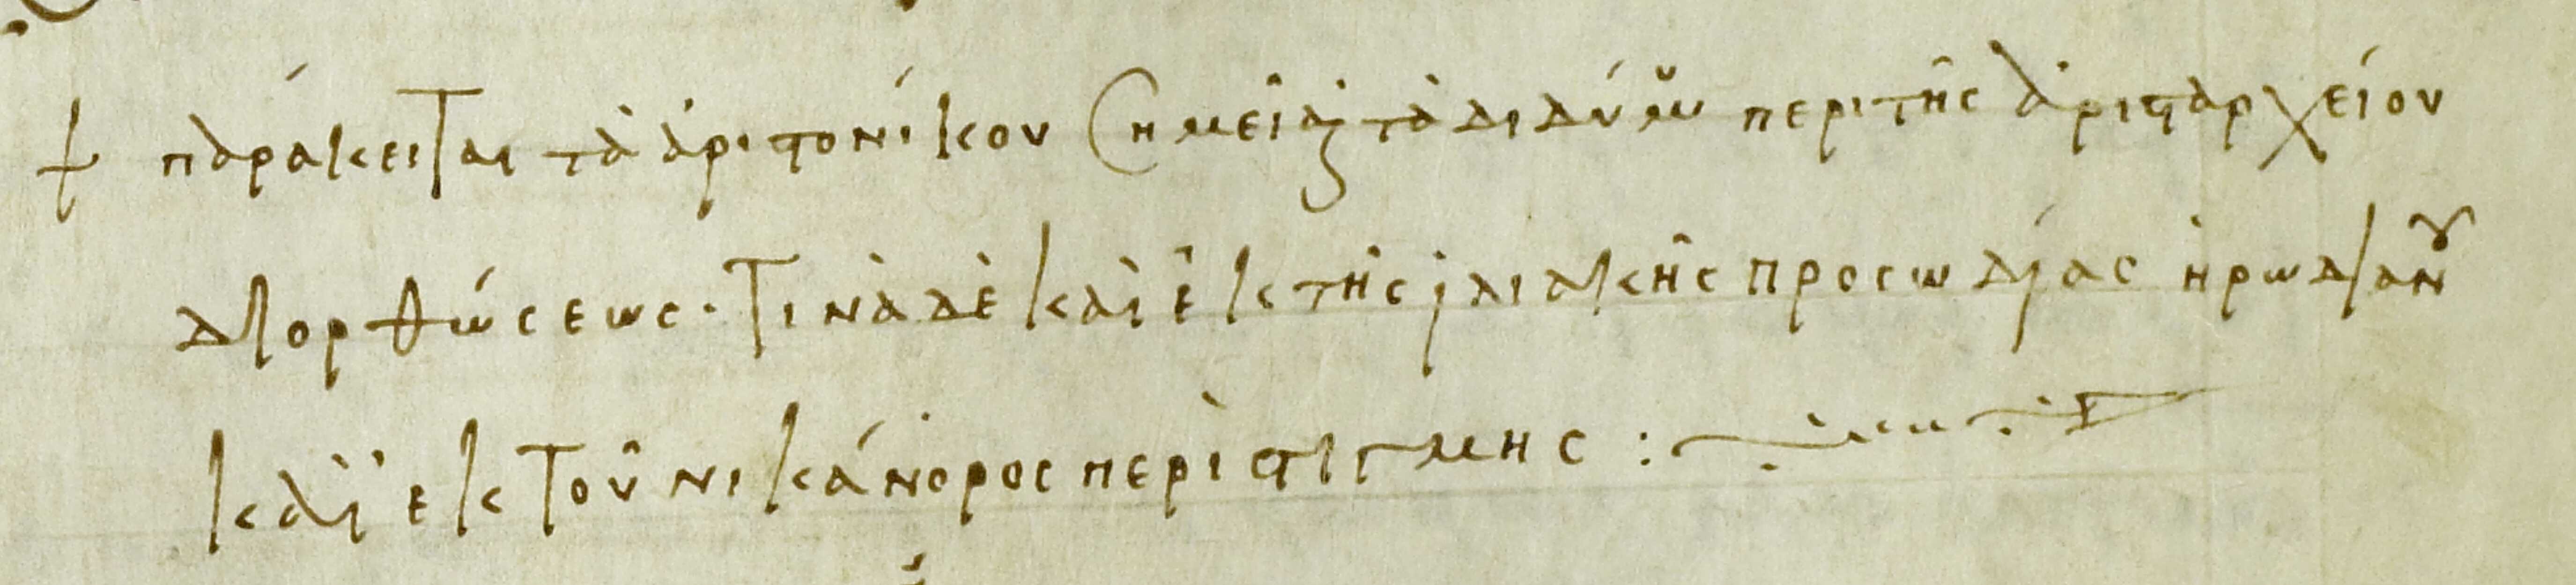 παράκειται τὰ ἀριστονίκου σημεῖα καὶ τὰ διδύμου περὶ τῆς ἀρισταρχείου
διορθώσεως· τινὰ δὲ καὶ ἐκ τῆς ἰλιακῆς προσωδίας ἡρωδιανοῦ
καὶ ἐκ τοῦ νικάνορος περὶ στιγμης :